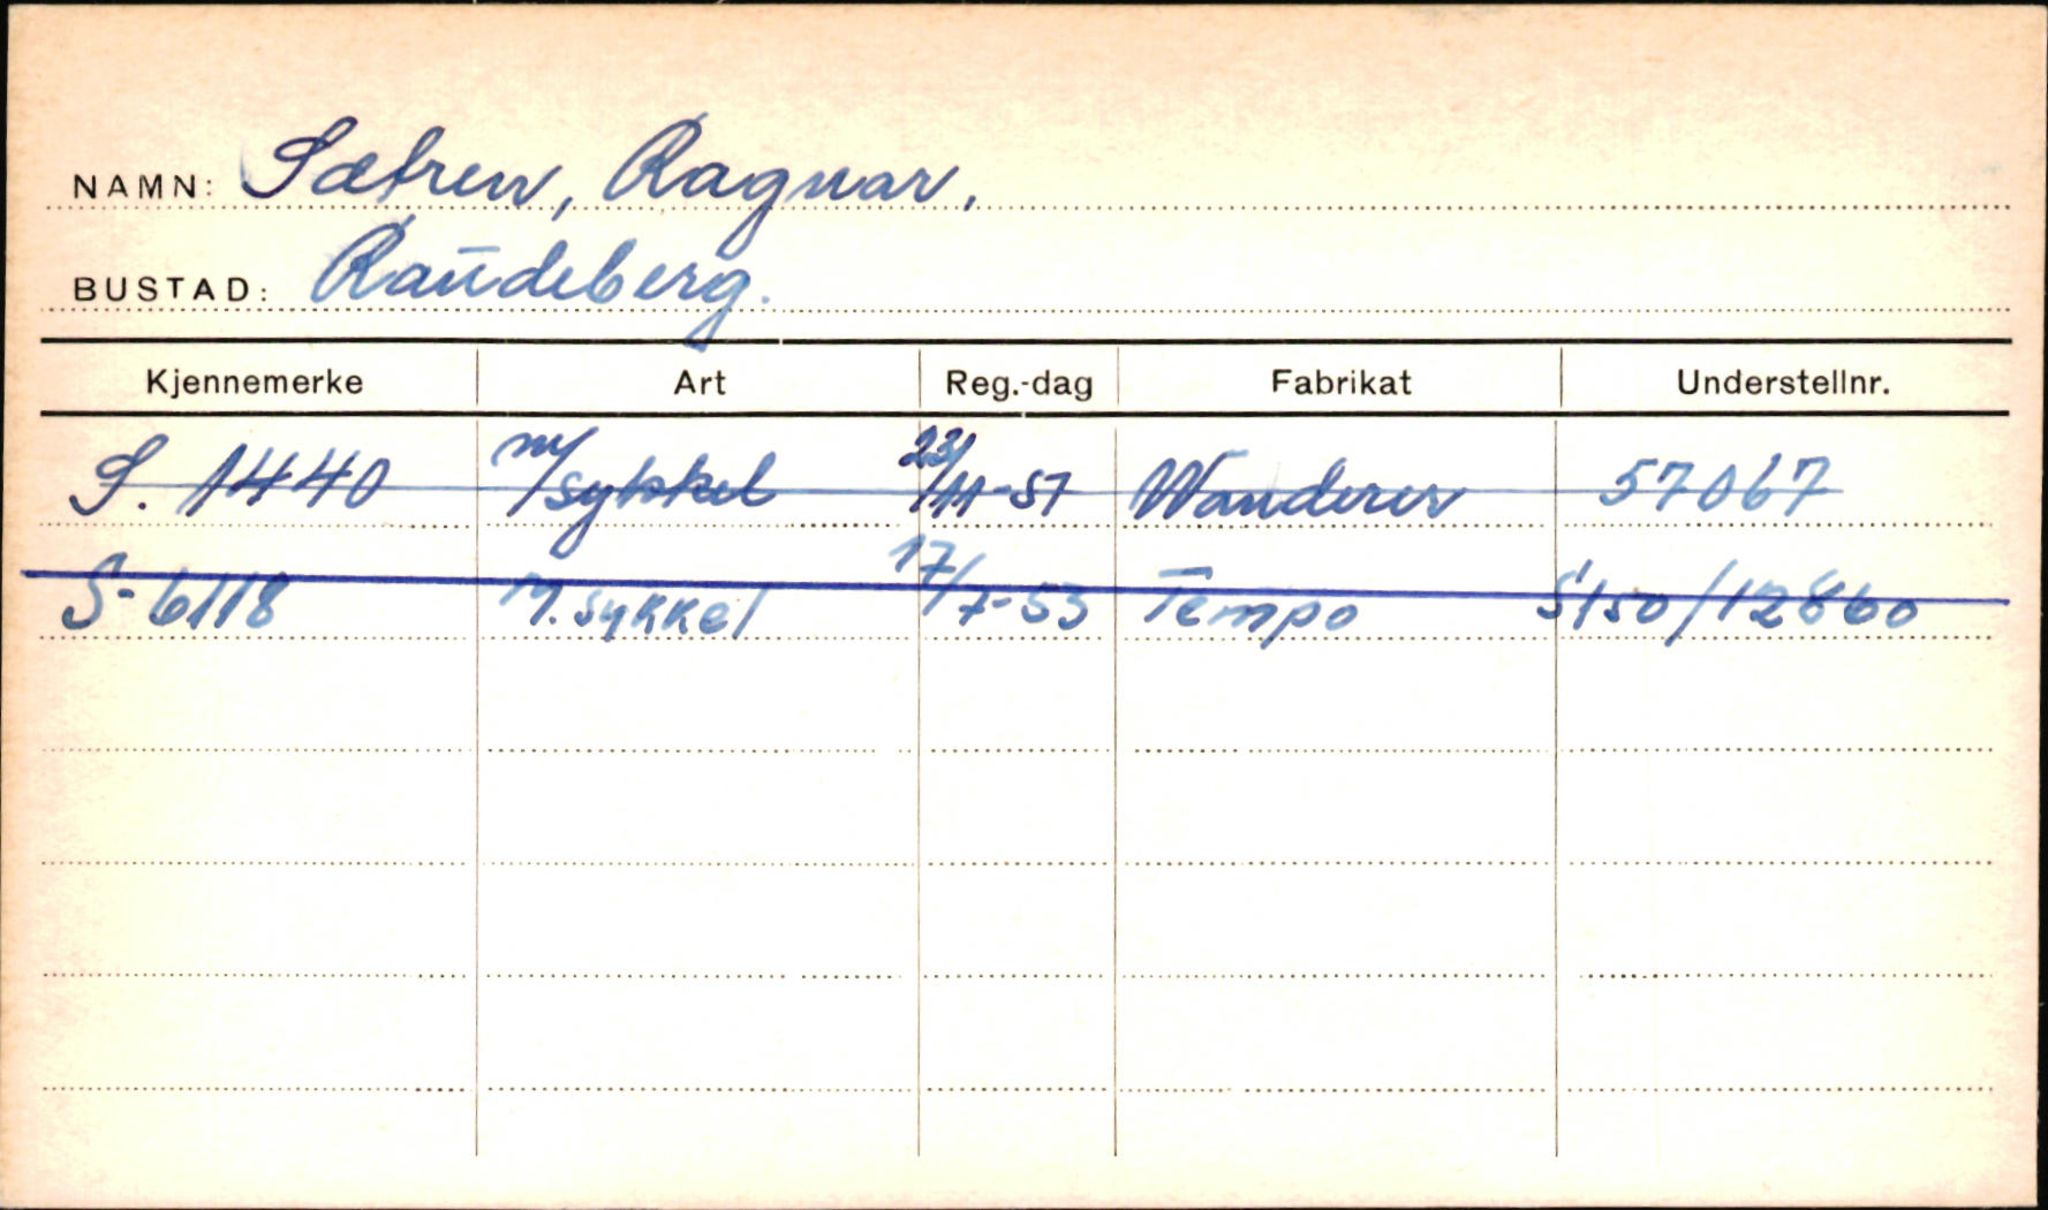 NAMN: Sætren, Ragnar.
BUSTAD: Raudeberg.
Kjennemerke Art Reg.-dag Fabrikat Understellnr.
S. 1440 m/sykkel 23/11-51 Wanderer 57067
S-6118 M.sykkel 17/7-53 Tempo S150/12860